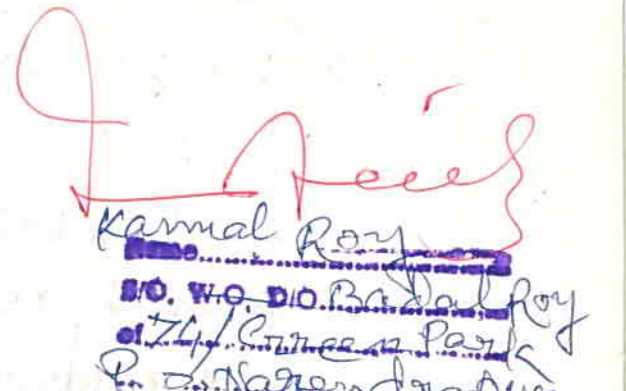 Kamal Roy
Name
S/O. W.O. D/O. Badal Roy
of 74/ Green Park
P. O. Narendrapur